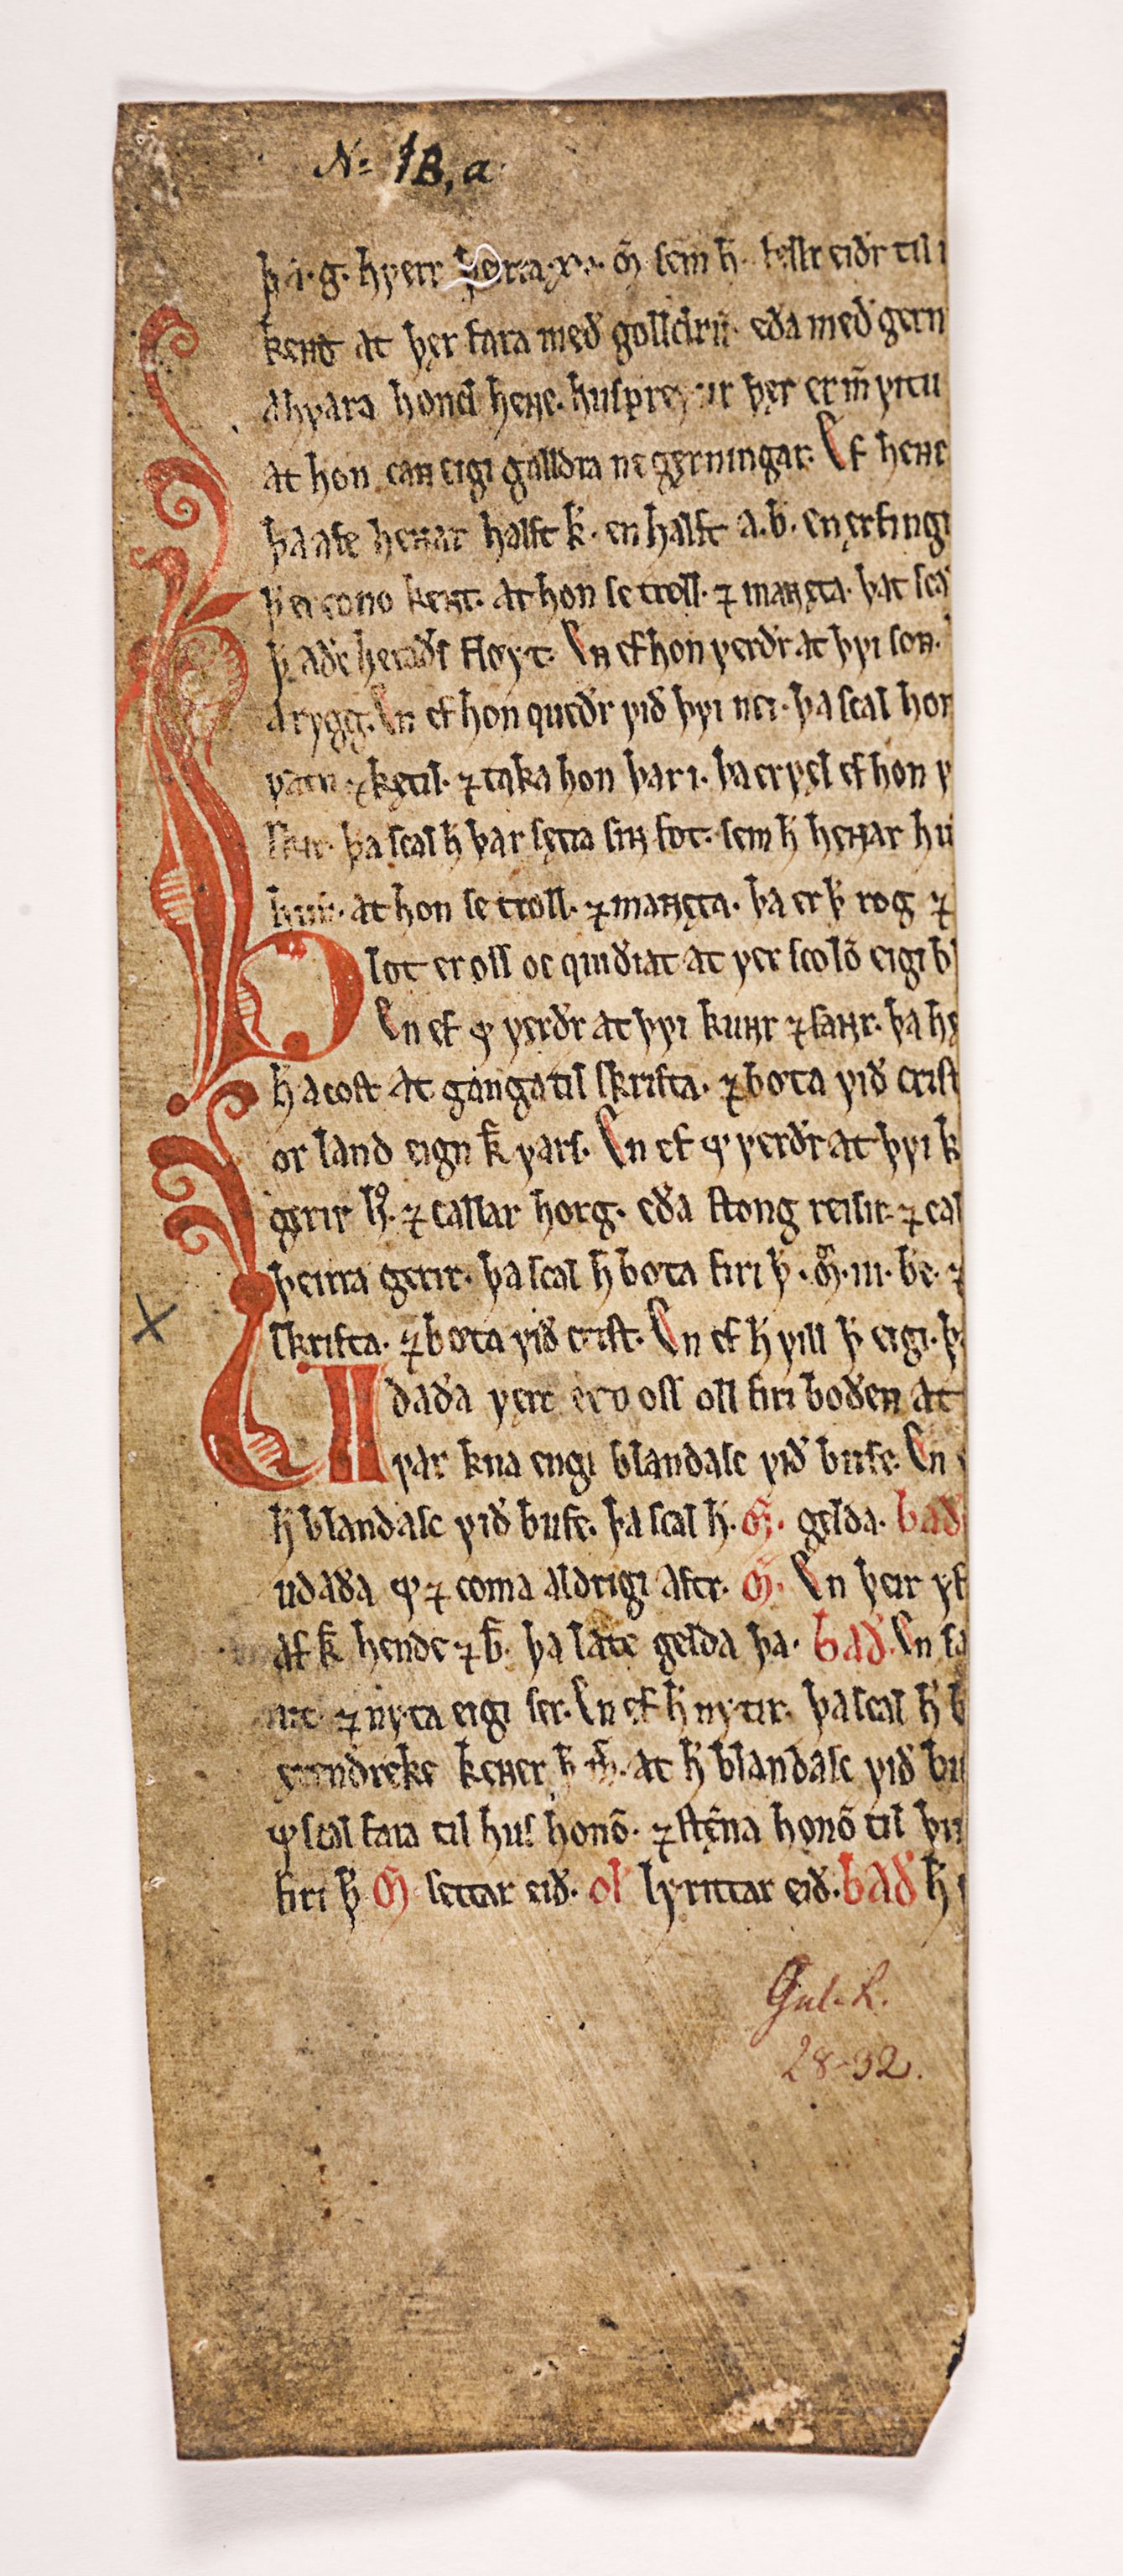 Nº 1B,a
þ á. g. hverr þeirra .xv. m̃ sem h̄. fellr eiðr til
kent at þer fara með golldrū. eða með gern
ahvara hond hene. husprey ur þer er m̄ vitu
at hon can eigi galldra ne gerningar. Ef hene
þa afe hennar halft k̄. en halft a.b. en erfingi
kono kent. at hon se troll. ⁊ manęta. þat scā
heraðs fløyt. En ef hon verðr at þvi son.
a rygg. En ef hon queðr við þvi nei. þa scal hon
vatn ⁊ kętil. ⁊ taka hon þar i. þa er vęl ef hon v
þa scal h̄ þar sętta sin fot. sem h̄ hennar hu
at hon se troll. ⁊ manęta. þa er þ̄ rog ⁊
Blot er oss oc quiðiat at ver scolō eigi b
En ef ꝩ verðr at þvi kunr ⁊ sanr. þa hę
h̄ a cost at ganga til skrifta. ⁊ bøta við crist
or land eign k̄ vars. En ef ꝩ verðr at þvi k
gerir h̄. ⁊ callar horg. eða stong reisir. ⁊ cal
þeirra gerir. þa scal h̄ bøta firi þ̄. m̃. iii. be. ⁊
skrifta. ⁊ bøta við crist. En ef h̄ vill þ̄ eigi. þ
Udaða verc ero oss oll firi boðen at
var kna engi blandasc við bufe. En
h̄ blandasc við bufe. þa scal h̄. m̃. gelda. bað
udaða ꝩ ⁊ coma aldrigi aftr. m̃. En þeir yf
af k̄ hende ⁊ b̄. þa late gelda þa. bað. En sa
⁊ nyta eigi ser. En ef h̄ nytir. þa scal h̄ b
eyrendreke kener h̄ m̃. at h̄ blandasc við bu
ꝩ scal fara til hus honō. ⁊ stęfna honō til þi
firi þ̄ m̃ settar eið. ol lyrittar eið. bað h̄
Gul. L.
28-32.